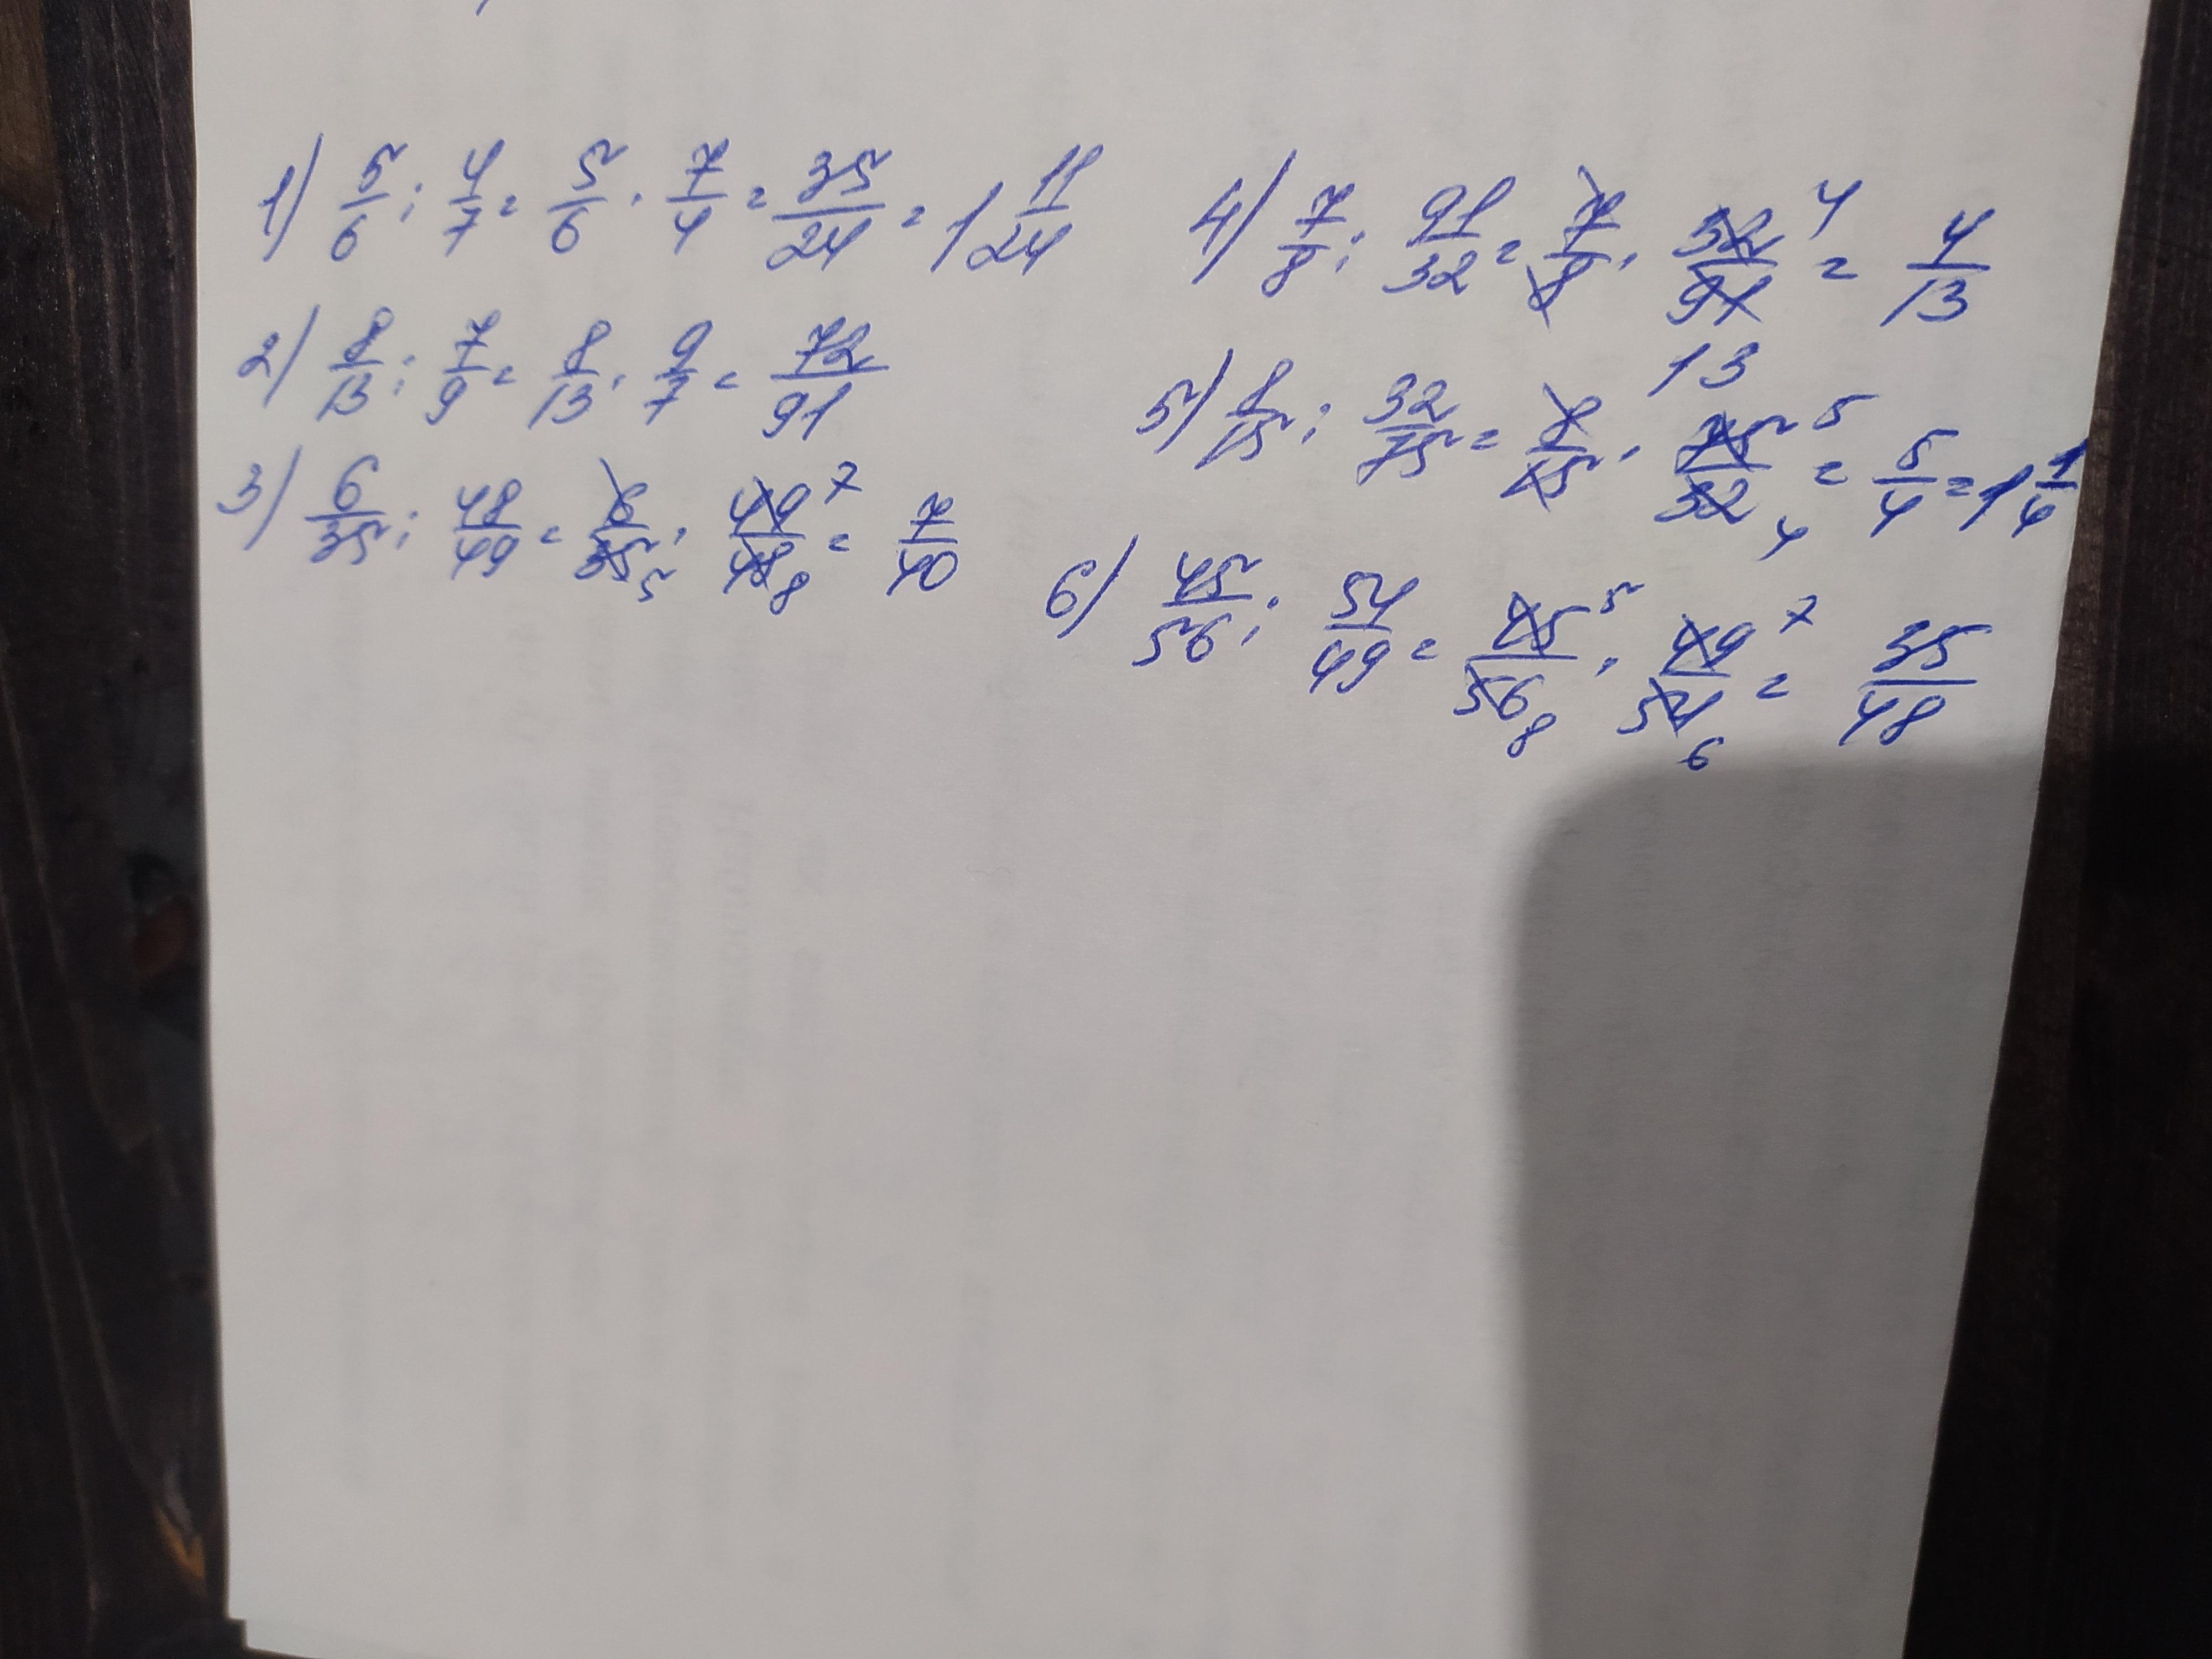 1) 5/6 : 4/7 = 5/6 · 7/4 = 35/24 = 1 11/24
2) 8/13 : 7/9 = 8/13 · 9/7 = 72/91
3) 6/35 : 48/49 = 6/35 5 · 49 7/48 8 = 7/40
4) 7/8 : 91/32 = 7/8 · 32 4/91 13 = 4/13
5) 8/15 : 32/75 = 8/15 · 75 5/32 4 = 5/4 = 1 1/4
6) 45/56 : 54/49 = 45 5/56 8 · 49 7/54 6 = 35/48